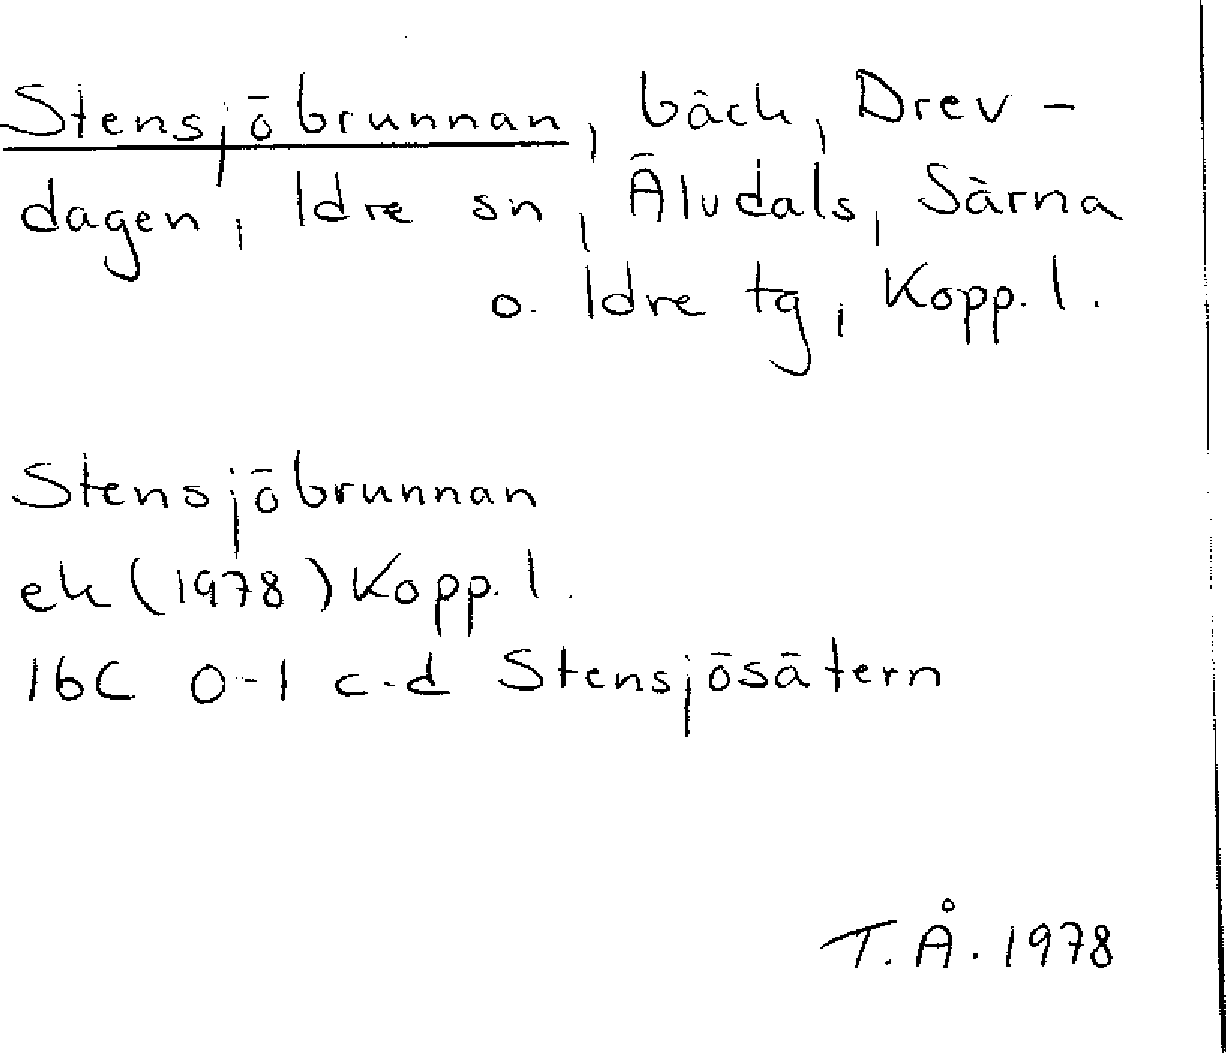 Stensjöbrunnan, bäck, Drev-
dagen, Idre sn, Älvdals, Särna
o. Idre tg, Kopp. l.
Stensjöbrunnan
ek (1978) Kopp. l.
16C 0-1 c-d Stensjösätern
T. Å. 1978